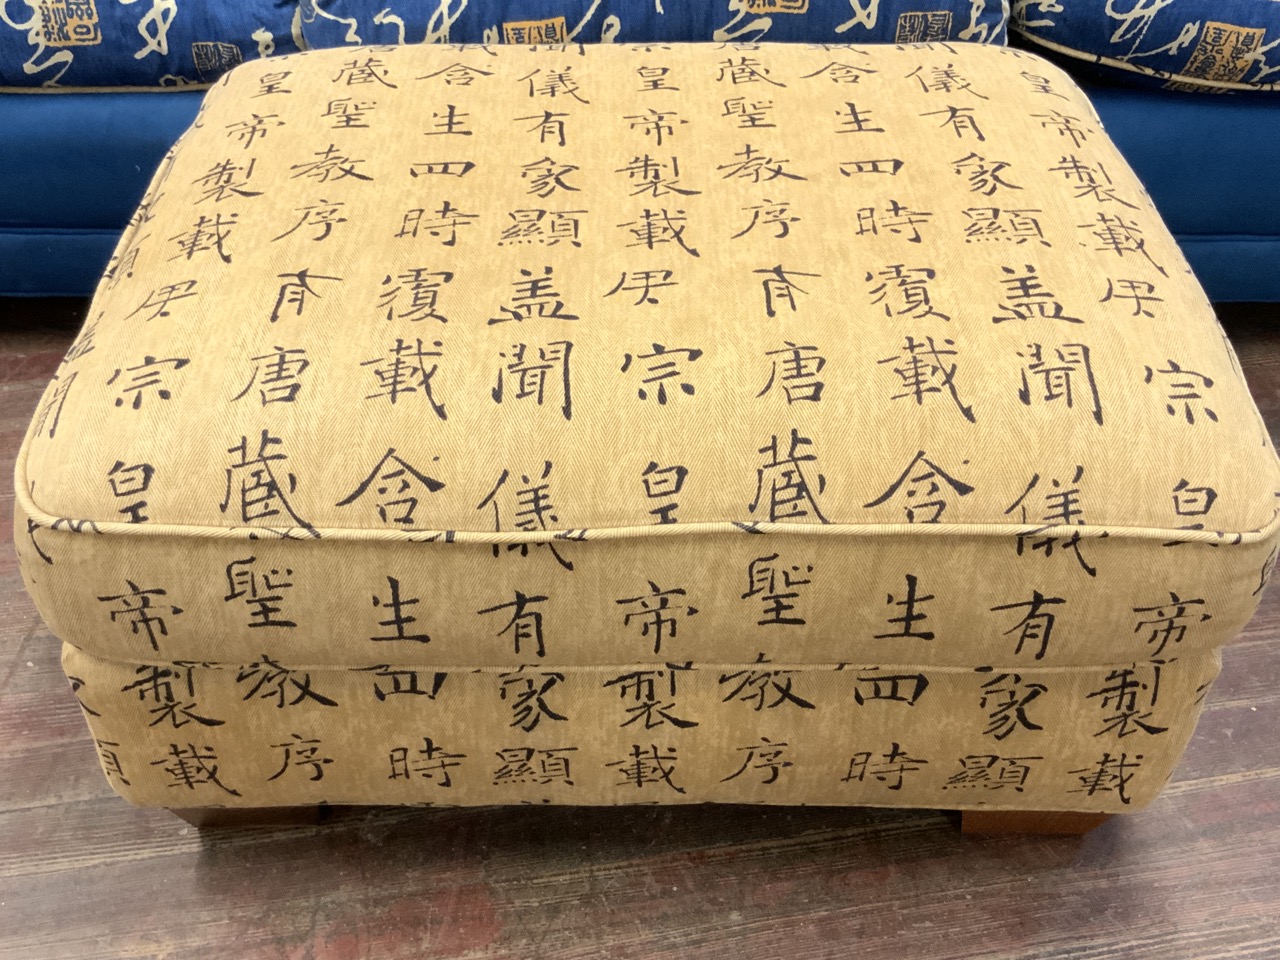 皇帝製載宗皇帝製載
聞儀有象顯盖聞儀有象顯
載含生四時覆載含生四時
唐藏聖教序唐藏聖教序
皇帝製載宗皇帝製載
聞儀有象顯盖聞儀有象顯
載含生四時覆載含生四時
藏聖教序唐藏聖教序
皇帝製載宗皇帝製載
顯盖聞